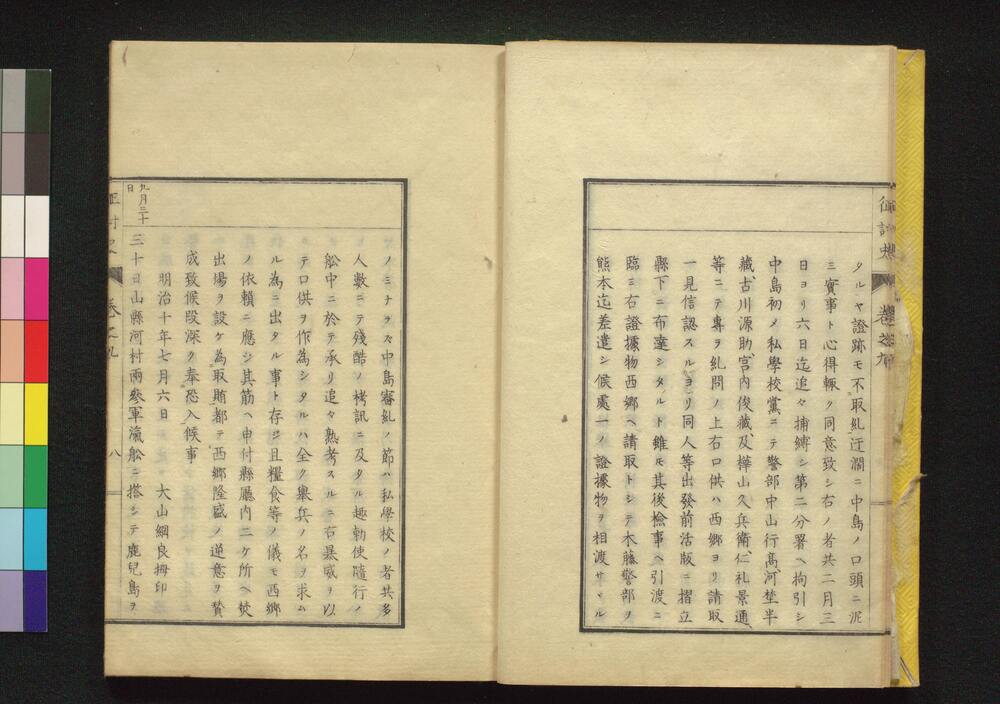 タルヤ證跡モ不取糺迂濶ニ中島ノ口頭ニ泥
ミ實事ト心得輙ク同意致シ右ノ者共二月三
日ヨリ六日迄追々捕縛シ第二分署ヘ拘引シ
中島初メ私學校黨ニテ警部中山行髙、河埜半
藏、古川源助、宮内俊藏、及樺山久兵衛、仁礼景通、
等ニテ專ヲ糺問ノ上右口供ハ西郷ヨリ請取
一見信認スルヨリ同人等出發前活版ニ摺立
縣下ニ布達シタルト雖モ其後檢事ヘ引渡ニ
臨ミ右證據物西郷ヘ請取トシテ木藤警部ヲ
熊本迄差遣シ候處一ノ證據物ヲ相渡サヽル
ノミナラス中島審糺ノ節ハ私學校ノ者共多
人數ニテ殘酷ノ拷訊ニ及タル趣勅使隨行ノ
舩中ニ於テ承リ追々熟考スルニ右暴威ヲ以
テ口供ヲ作為シタルハ全ク擧兵ノ名ヲ求ム
ル為ニ出タル事ト存ジ且糧食等ノ儀モ西郷
ノ依頼ニ應ジ其筋ヘ申付縣廳内二ケ所ヘ焚
出場ヲ設ケ為取賄都テ西郷隆盛ノ逆意ヲ賛
成致候段深ク奉恐入候事
明治十年七月六日 大山綱良拇印
九月三十
日
三十日山縣河村両參軍滊舩ニ搭シテ鹿兒島ヲ
卷之九
八